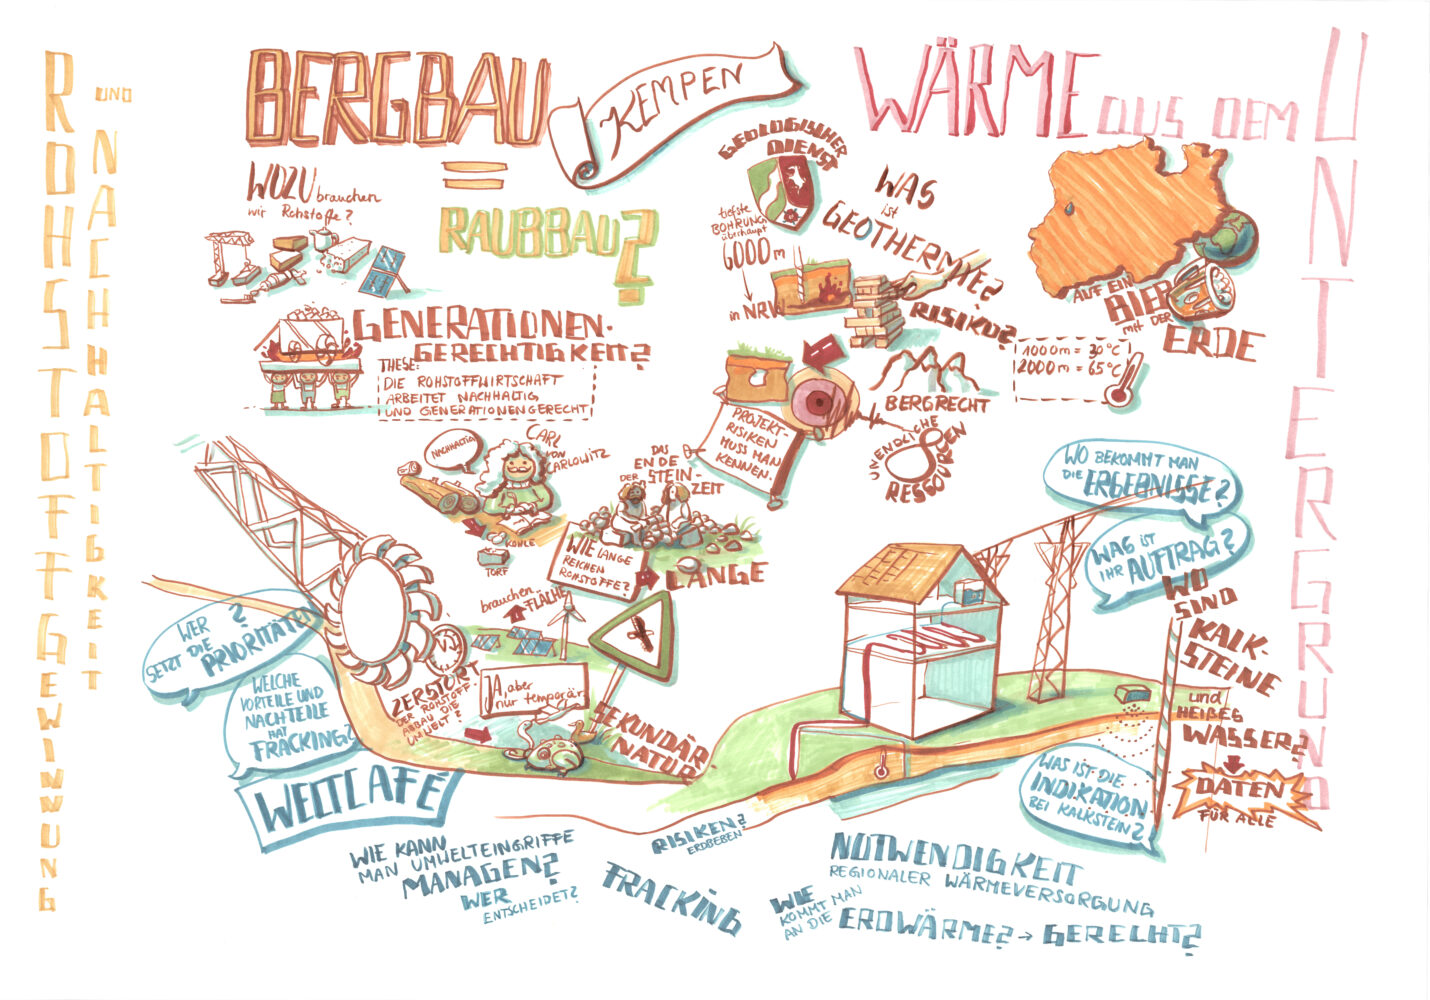 ROHSTOFFGEWINNUNG
UND
NACHHALTIGKEIT
BERGBAU
=
RAUBBAU?
KEMPEN
WÄRME AUS DEM
UNTERGRUND
WOZU brauchen
wir Rohstoffe?
GENERATIONEN-
GERECHTIGKEIT?
THESE:
DIE ROHSTOFFWIRTSCHAFT
ARBEITET NACHHALTIG
UND GENERATIONENGERECHT
NACHHALTIG
CARL
VON
CARLOWITZ
KOHLE
TORF
DAS
ENDE
DER STEIN-
ZEIT
WIE LANGE
REICHEN
ROHSTOFFE?
LANGE
brauchen
FLÄCHE
ZERSTÖRT
DER ROHSTOFF-
ABBAU DIE
UMWELT?
JA, aber
nur temporär.
SEKUNDÄR-
NATUR
GEOLOGISCHER
DIENST
tiefste
BOHRUNG
überhaupt
6000 m
in NRW
WAS
ist
GEOTHERMIE?
RISIKO?
PROJEKT-
RISIKEN
MUSS MAN
KENNEN.
BERGRECHT
UNENDLICHE
RESSOURCEN
AUF EIN
BIER
mit DER
ERDE
1000m = 30°C
2000m = 65°C
WO BEKOMMT MAN
DIE ERGEBNISSE?
WAS IST
IHR AUFTRAG?
WO
SIND
KALK-
STEINE
und
HEIßES
WASSER?
DATEN
FÜR ALLE
WAS IST DIE
INDIKATION
BEI KALKSTEIN?
WER
SETZT DIE
PRIORITÄTEN?
WELCHE
VORTEILE UND
NACHTEILE
HAT
FRACKING?
WELTCAFÉ
WIE KANN
MAN UMWELTEINGRIFFE
MANAGEN?
WER
ENTSCHEIDET?
RISIKEN?
ERDBEBEN
FRACKING
NOTWENDIGKEIT
REGIONALER WÄRMEVERSORGUNG
WIE
KOMMT MAN
AN DIE ERDWÄRME? → GERECHT?